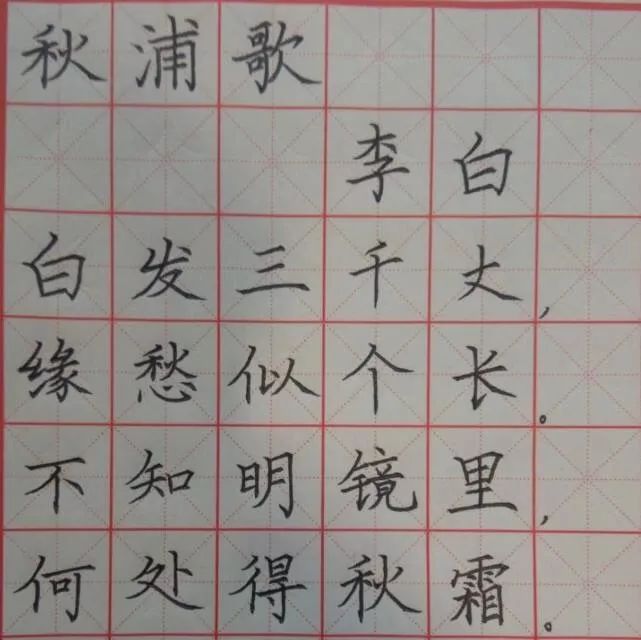 秋浦歌
李白
白发三千丈,
缘愁似个长。
不知明镜里,
何处得秋霜。